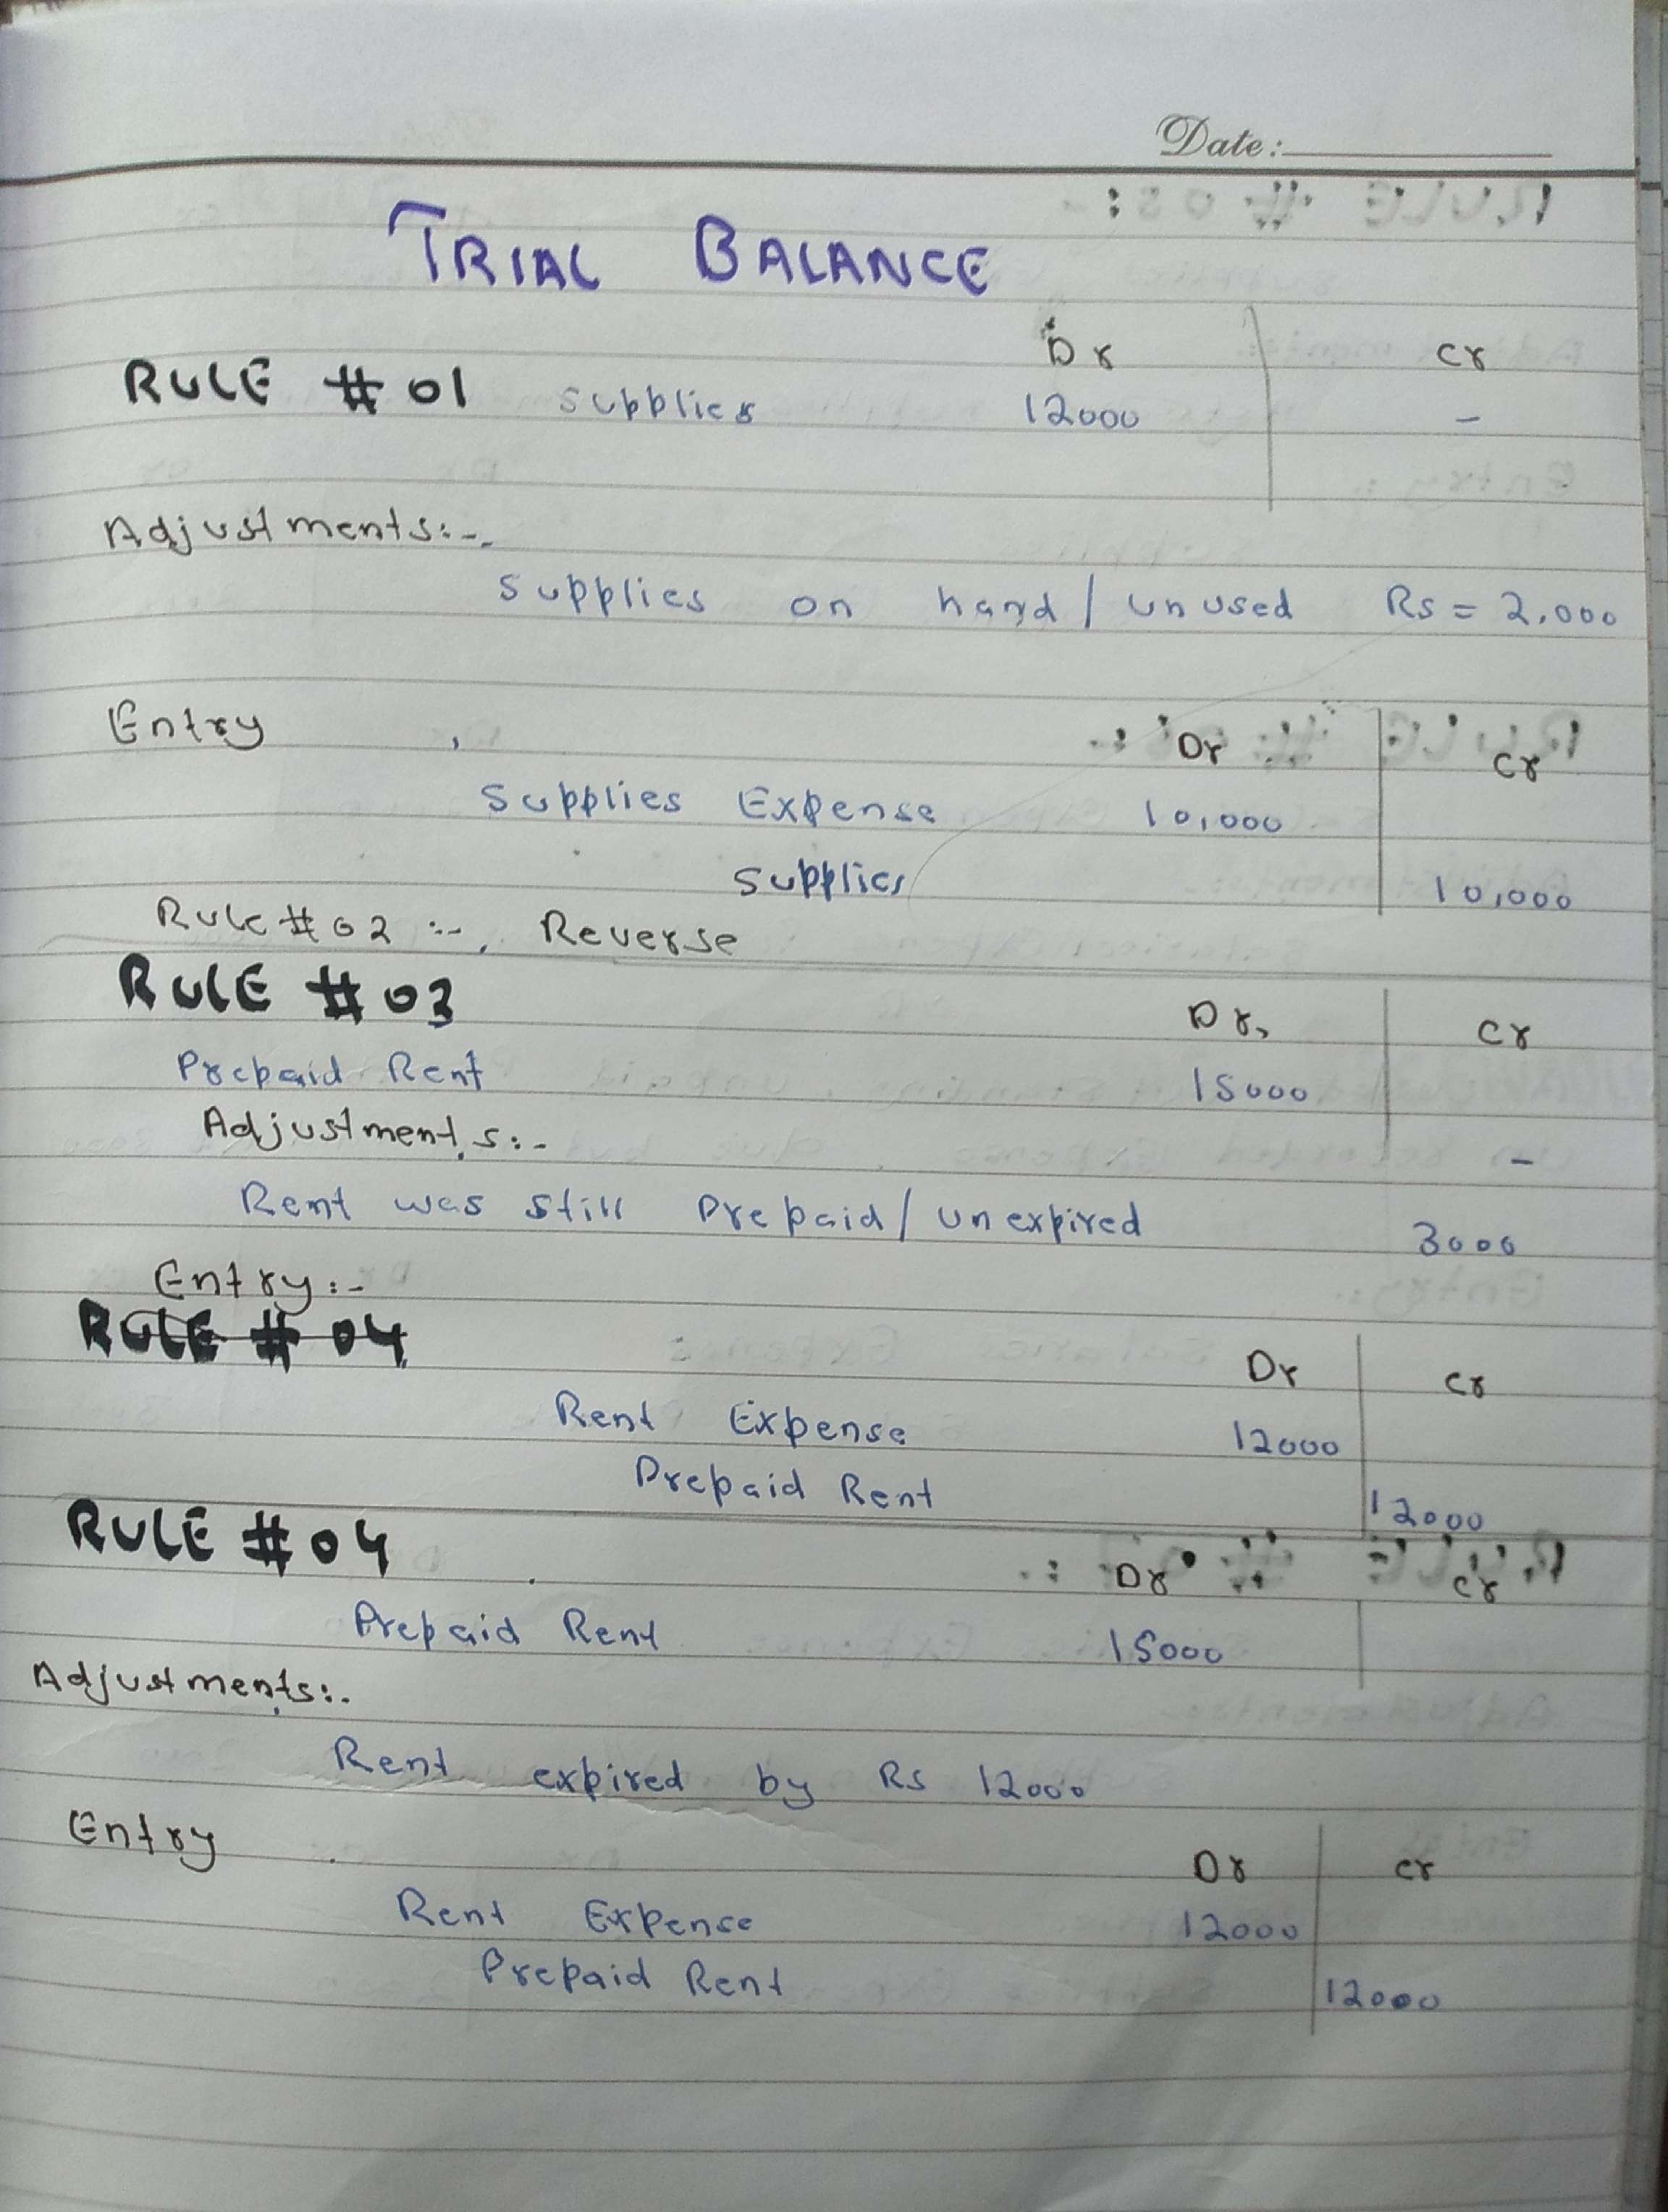 Date:
TRIAL BALANCE
Dr Cr
RULE # 01 Supplies 12000 -
Adjustments:-
Supplies on hand / unused Rs = 2,000
Entry Dr Cr
Supplies Expense 10,000
Supplies 10,000
Rule # 02 :- Reverse
RULE # 03 Dr, Cr
Prepaid Rent 15000
Adjustments:- -
Rent was still Prepaid / unexpired 3000
Entry:-
RULE # 04
Dr Cr
Rent Expense 12000
Prepaid Rent 12000
RULE # 04 Dr Cr
Prepaid Rent 15000
Adjustments:-
Rent expired by Rs 12000
Entry Dr Cr
Rent Expense 12000
Prepaid Rent 12000